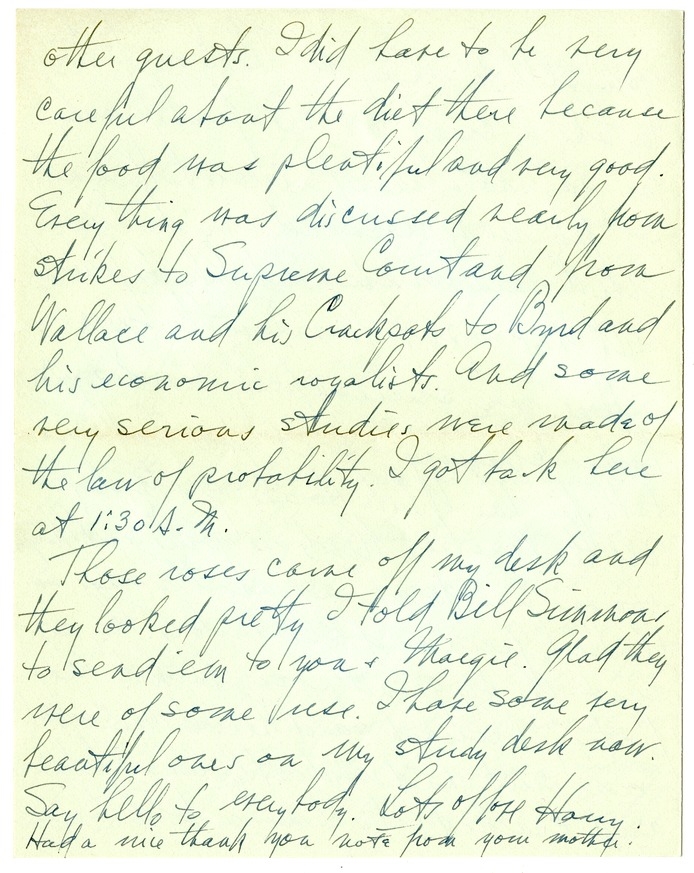 other guests. I did have to be very
careful about the diet there because
the food was plentiful and very good.
Everything was discussed nearly from
strikes to Supreme Court and from
Wallace and his Crackpots to Byrd and
his economic royalists. And some
very serious studies were made of
the law of probability. I got back here
at 1:30 A.M.
Those roses came off my desk and
they looked pretty I told Bill Simmons
to send 'em to you & Margie. Glad they
were of some use. I have some very
beautiful ones on my study desk now.
Say hello to everybody. Lots of love Harry.
Had a nice thank you note from your mother.